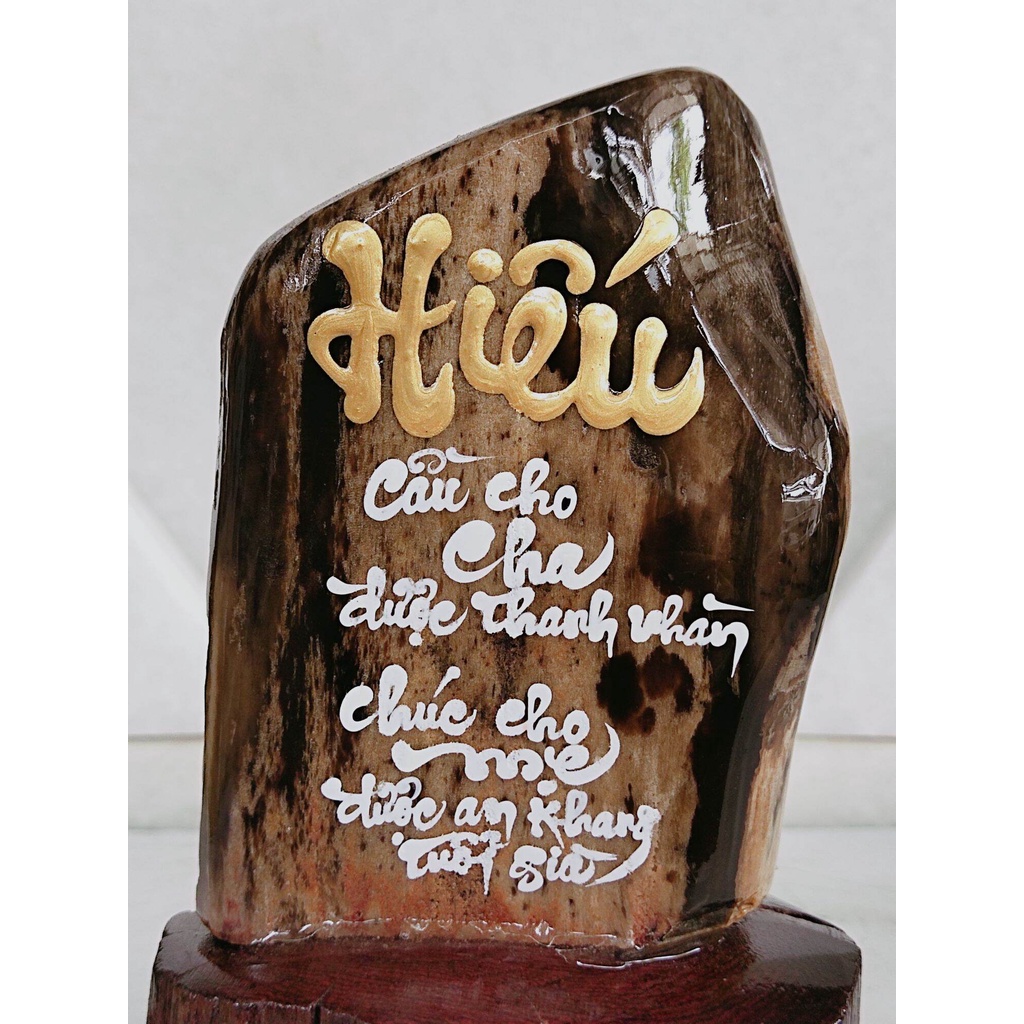 Hiếu
Cầu cho
Cha
được thanh nhàn
chúc cho
mẹ
được an khang
tuổi già